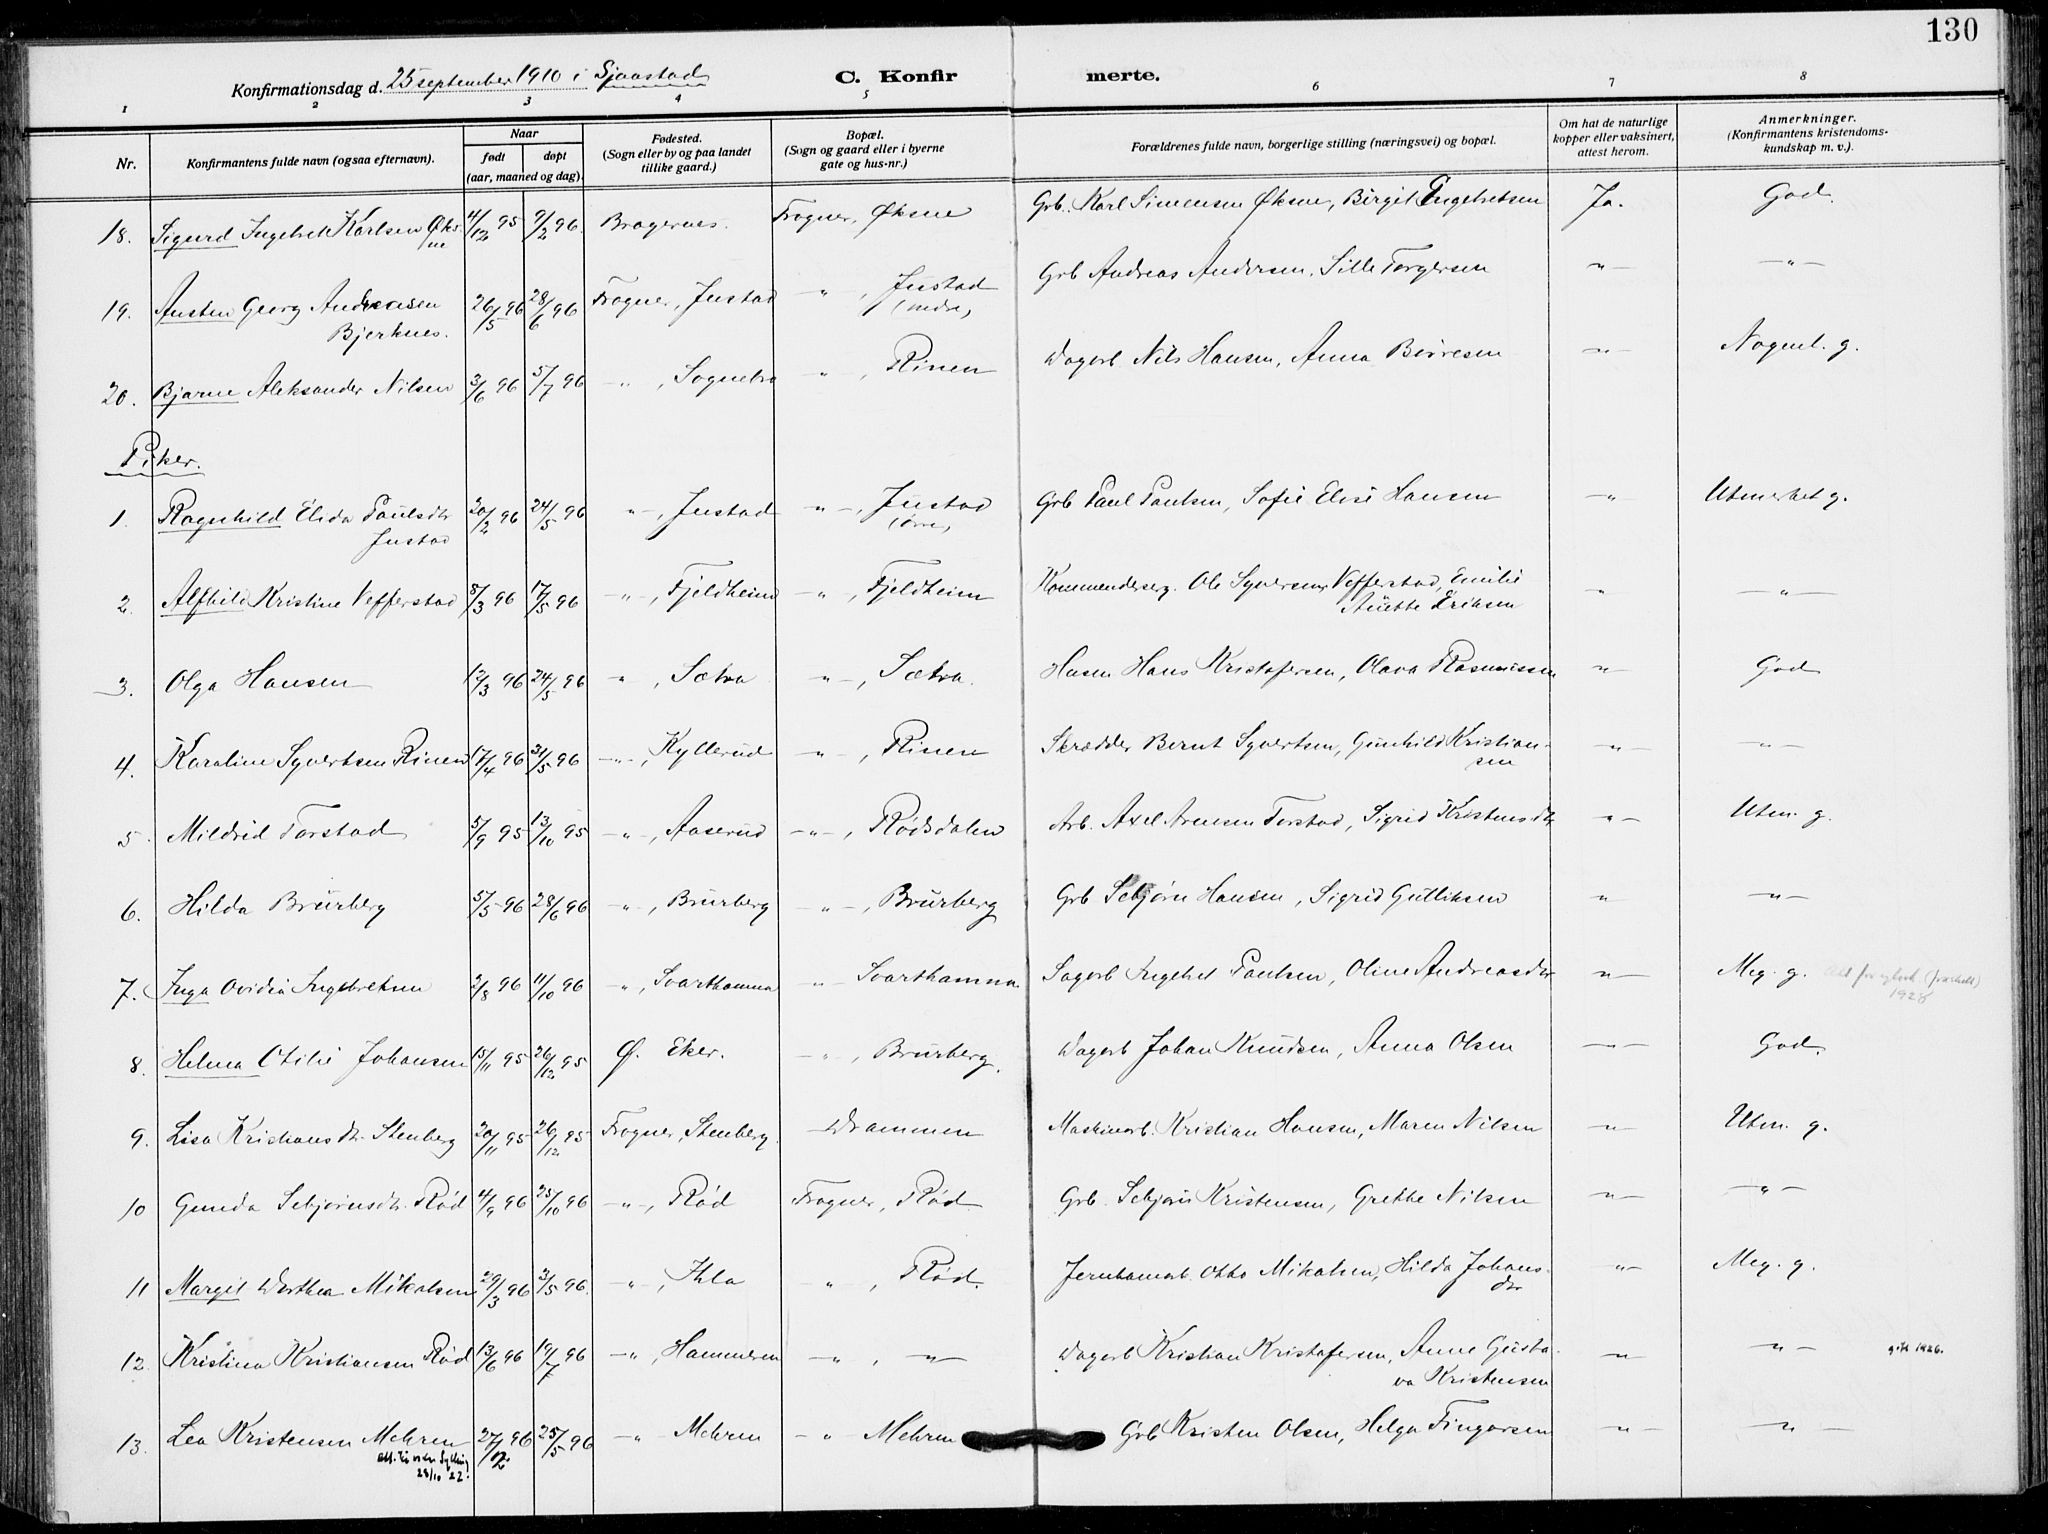 130
Konfirmationsdag d. 25 september 1910 i Sjaastad C. Konfirmerte.
1 2 3 4 5 6 7 8
Nr. Konfirmantens fulde navn (ogsaa efternavn). Naar født døpt (aar, maaned og dag). Fødested. (Sogn eller by og paa landet tillike gaard.) Bopæl. (Sogn og gaard eller i byerne gate og hus-nr.) Forældrenes fulde navn, borgerlige stilling (næringsvei) og bopæl. Om hat de naturlige kopper eller vaksinert, attest herom. Anmerkninger. (Konfirmantens kristendoms-kundskap m. v.).
18. Sigurd Ingebret Karlsen Øksne 4/12 95 9/2 96. Bragernes. Frogner, Øksne Grb. Karl Simensen Øksne, Birgit Ingebretsen Ja. God.
19. Austen Georg Andreasen Bjerknes. 26/5 96 28/6 96 Frogner, Justad -"-, Justad (nedre) Grb Andreas Andersen, Sille Torgersen -"- -"-
20. Bjarne Aleksander Nilsen 3/6 96 5/7 96 -"-, Sognebo -"-, Rinen Dagarb Nils Hansen, Anna Børresen -"- Nogenl. g.
Piker.
1. Ragnhild Elida Paulsdtr Justad 20/2 96 24/5 96 -"-, Justad -"-, Justad (øvre) Grb Paul Paulsen, Sofie Elise Hansen -"- Utmerket g.
2. Alfhild Kristine Vefferstad 8/3 96 17/5 96 -"-, Fjeldheim -"-, Fjeldheim Kommendersg. Ole Syversen Vefferstad, Emilie Anette Eriksen " -"-
3. Olga Hansen 12/3 96 24/5 96 ", Sætra -"-, Sætra. Husm Hans Kristofersen, Olava Rasmussen "- God
4. Karoline Syvertsen Rinen 17/4 96 31/5 96 -"-, Kyllerud -"-, Rinen Skrædder Bernt Syvertsen, Gunhild Kristiansen -"- -"-
5. Mildrid Torstad 5/9 95 13/10 95 -"-, Aaserud -"-, Rødsdalen Arb. Axel Arensen Torstad, Sigrid Kristensdtr "- Utm. g.
6. Hilda Brurberg 5/5 96 28/6 96 -"-, Brurberg -"-, Brurberg Grb Sebjørn Hansen, Sigrid Gulliksen " -"-
7. Inga Ovidia Ingebretsen 2/8 96 11/10 96 ", Svarthamna -"- Svarthamna Sagarb Ingebret Paulsen, Oline Andreasdtr "- Meg. g. 1928
8. Helma Otilie Johansen 15/11 95 26/12 95 Ø. Eker. -"-, Brurberg. Dagarb Johan Knudsen, Anna Olsen -"- God.
9. Lisa Kristiansdtr. Stenberg 20/11 95 26/12 95 Frogner, Stenberg. Drammen Maskinarb. Kristian Hansen, Maren Nilsen "- Utm. g.
10 Gunda Sebjørnsdtr. Rød 4/9 96 25/10 96 -"-, Rød Frogner, Rød Grb. Sebjørn Kristensen, Grethe Nilsen "- -"-
11 Margit Dorthea Mikalsen 29/3 96 3/5 96. "-, Ihla ", Rød. Jernbanearb. Otto Mikalsen, Hilda Johansdtr "- Meg. g.
12. Kristina Kristiansen Rød 13/6 96 19/7 96 -"-, Hammeren -"-, -"- Dagarb Kristian Kristofersen, Anne Gustava Kristensen -"- "- gift 1926.
13. Lea Kristensen Mehren 27/12 96 25/5 96 -"- Mehren -"- Mehren Grb Kristen Olsen, Helga Fingarsen "- "-
28/10 22.